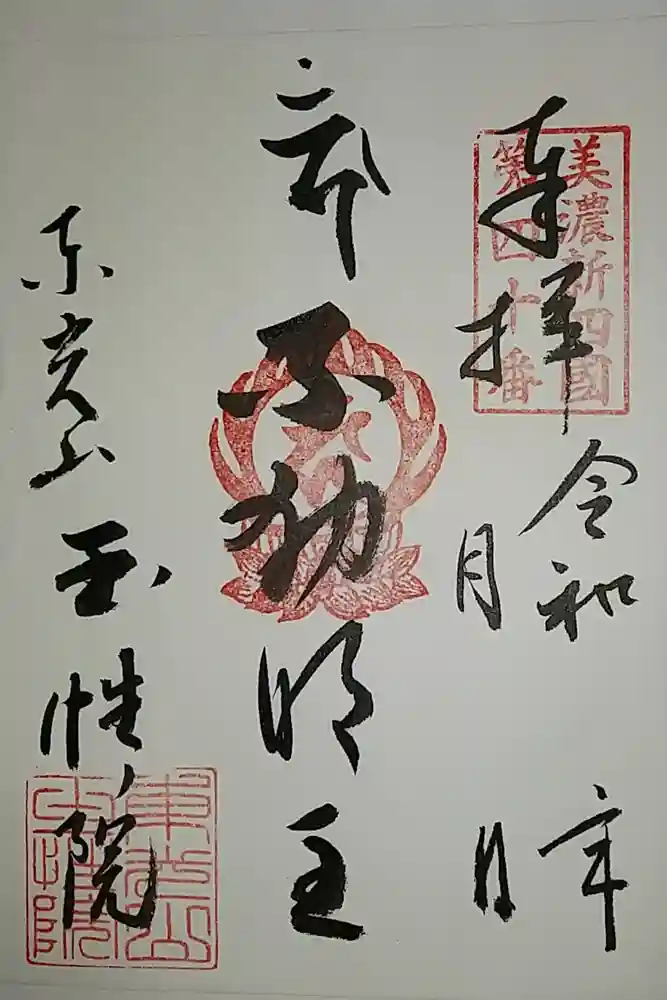 奉拝
令和 年
月 日
美濃新四國
第四十番
不動明王
東光山 玉性院
東光山
玉性院